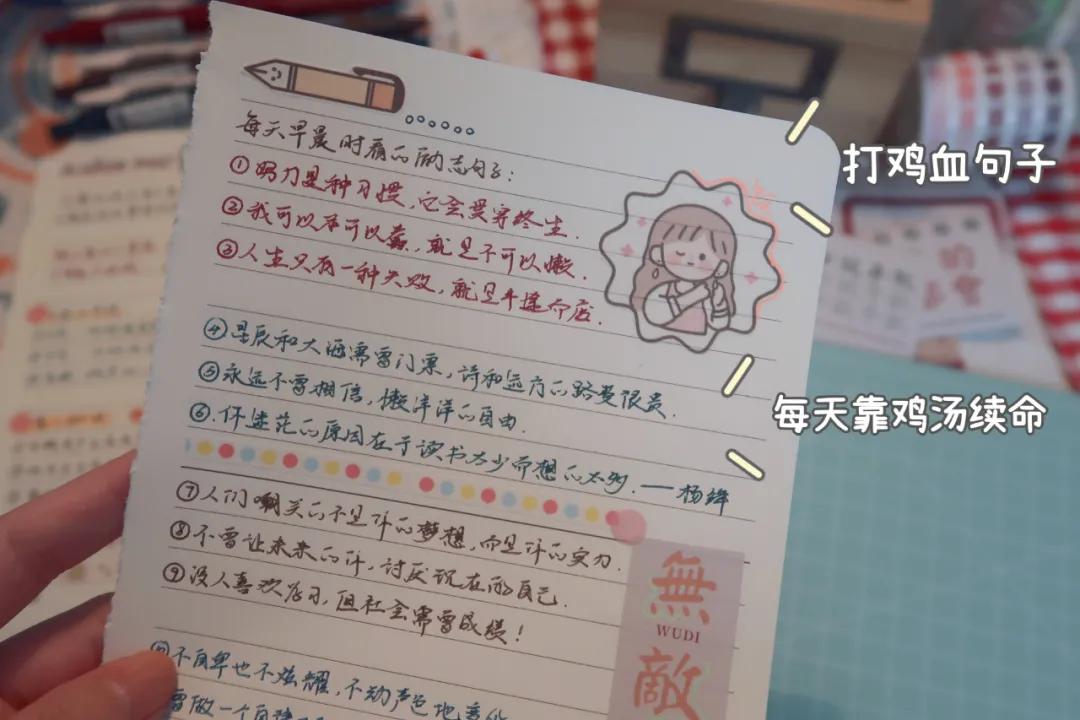 打鸡血句子
每天早晨时看的励志句子：
①努力是种习惯，它会贯穿终生.
②我可以可以蠢，就是不可以懒.
③人生只有一种失败，就是半途而废.
④星辰和大海需要门票，诗和远方的路费很贵.
每天靠鸡汤续命
⑤永远不要相信，懒洋洋的自由.
⑥.你迷茫的原因在于读书太少而想的太多.——杨绛
⑦人们嘲笑的不是你的梦想，而是你的实力.
⑧不要让未来的你，讨厌现在的自己.
⑨没人喜欢学习，但社会需要成绩！
無
WUDI
敵
不自卑也不炫耀，不动声色地
做一个